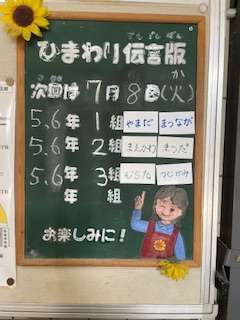 ひまわり伝言版
でんごんばん
次回は 7月8日(火)
じかい か
5、6年 1組 やまだ まつなが
5、6年 2組 まえかわ まつだ
5、6年 3組 むらた つじかみ
年 組
お楽しみに!